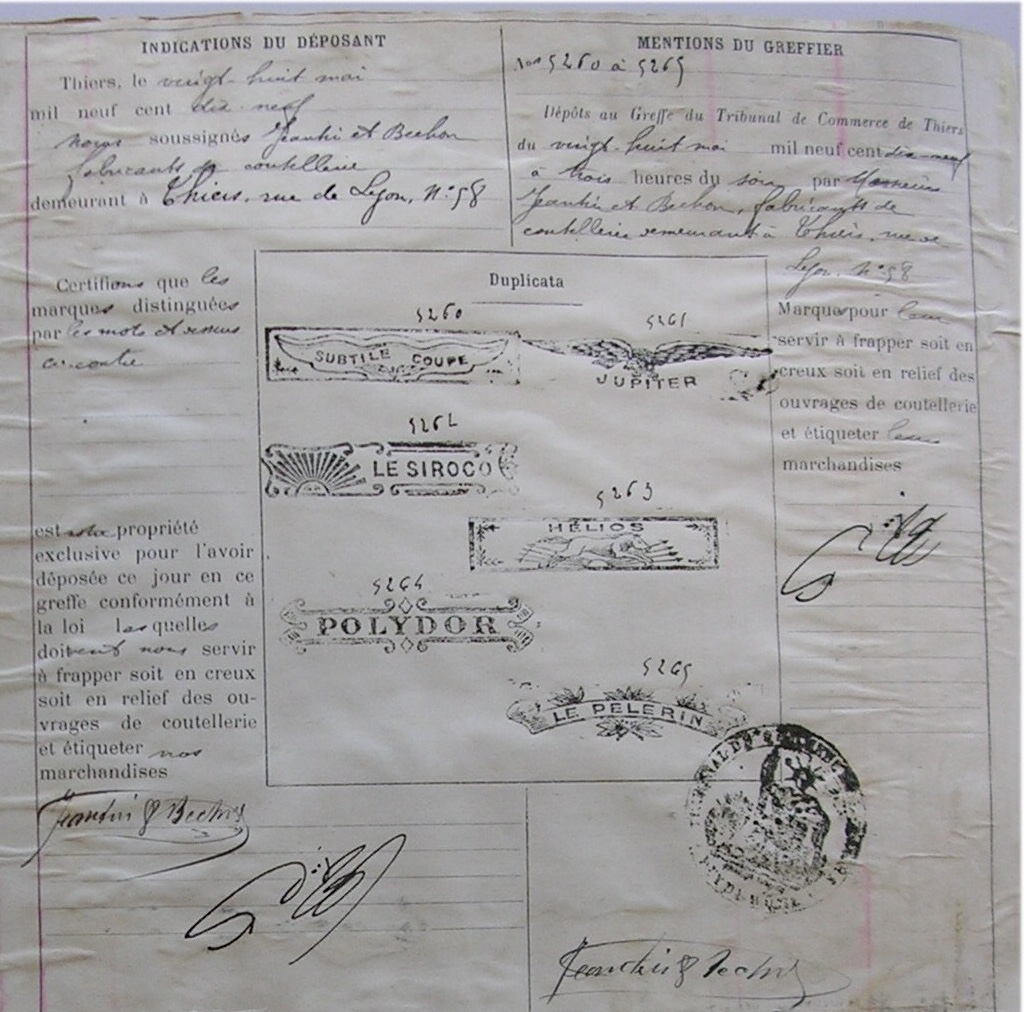 INDICATIONS DU DÉPOSANT
Thiers, le vingt-huit mai
mil neuf cent dix-neuf
nous soussignés Jeantin et Bechon
fabricants de coutellerie
demeurant à Thiers, rue de Lyon, N° 58
MENTIONS DU GREFFIER
Nos 5260 à 5265
Dépôts au Greffe du Tribunal de Commerce de Thiers
du vingt-huit mai mil neuf cent dix-neuf
à trois heures du soir par Messieurs
Jeantin et Bechon, fabricants de
coutellerie demeurant à Thiers, rue de
Lyon, N° 58
Certifions que les
marques distinguées
par les mots et dessins
ci-contre
est notre propriété
exclusive pour l'avoir
déposée ce jour en ce
greffe conformément à
la loi lesquelles
doivent nous servir
à frapper soit en creux
soit en relief des ou-
vrages de coutellerie
et étiqueter nos
marchandises
Jeantin & Bechon
Duplicata
5260
SUBTILE COUPE
5261
JUPITER
5262
LE SIROCO
5263
HÉLIOS
5264
POLYDOR
5265
LE PELERIN
Marque pour leur
servir à frapper soit en
creux soit en relief des
ouvrages de coutellerie
et étiqueter leurs
marchandises
Jeantin & Bechon